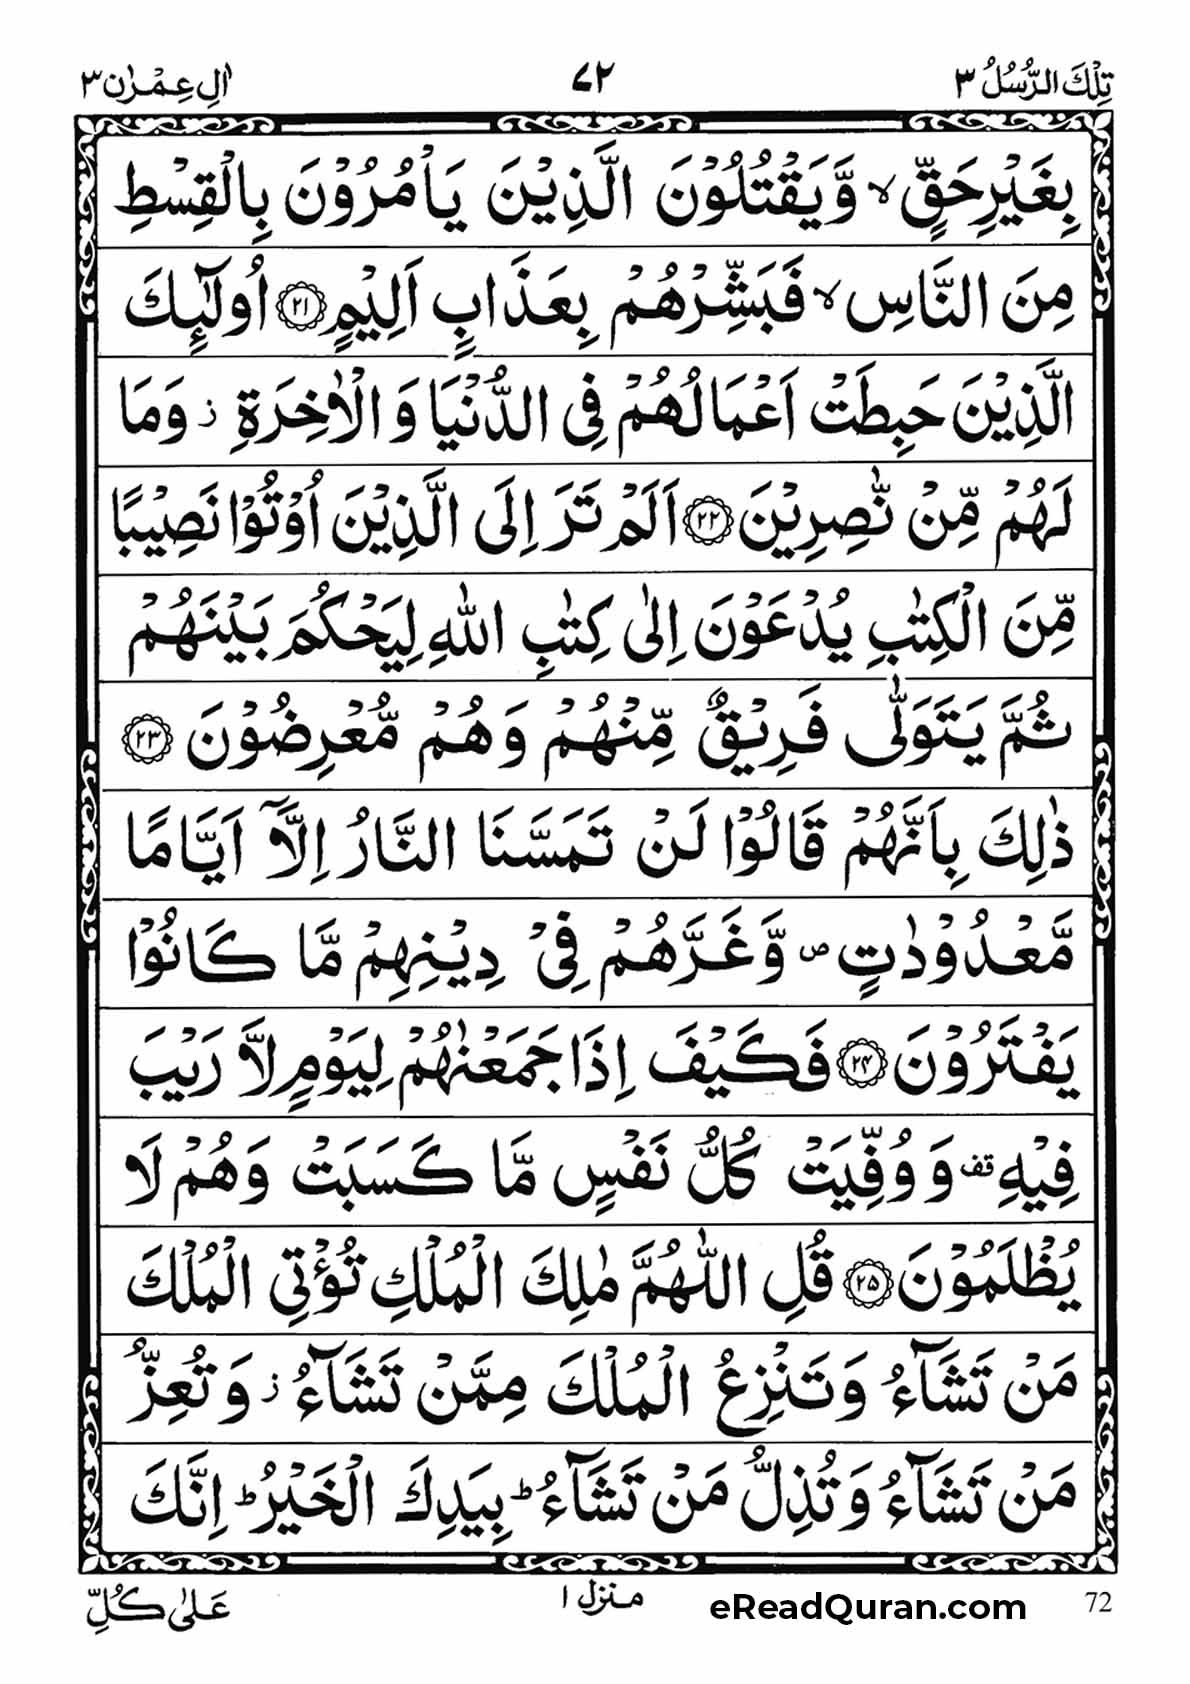 تِلْكَ الرُّسُلُ ٣ ٧٢ اٰلِ عِمْرٰن ٣
بِغَيْرِ حَقٍّ ۙ وَّيَقْتُلُوْنَ الَّذِيْنَ يَاْمُرُوْنَ بِالْقِسْطِ
مِنَ النَّاسِ ۙ فَبَشِّرْهُمْ بِعَذَابٍ اَلِيْمٍ ﴿٢١﴾ اُولٰٓئِكَ
الَّذِيْنَ حَبِطَتْ اَعْمَالُهُمْ فِى الدُّنْيَا وَ الْاٰخِرَةِ ز وَمَا
لَهُمْ مِّنْ نّٰصِرِيْنَ ﴿٢٢﴾ اَلَمْ تَرَ اِلَى الَّذِيْنَ اُوْتُوْا نَصِيْبًا
مِّنَ الْكِتٰبِ يُدْعَوْنَ اِلٰى كِتٰبِ اللّٰهِ لِيَحْكُمَ بَيْنَهُمْ
ثُمَّ يَتَوَلّٰى فَرِيْقٌ مِّنْهُمْ وَهُمْ مُّعْرِضُوْنَ ﴿٢٣﴾
ذٰلِكَ بِاَنَّهُمْ قَالُوْا لَنْ تَمَسَّنَا النَّارُ اِلَّآ اَيَّامًا
مَّعْدُوْدٰتٍ ص وَّغَرَّهُمْ فِىْ دِيْنِهِمْ مَّا كَانُوْا
يَفْتَرُوْنَ ﴿٢٤﴾ فَكَيْفَ اِذَا جَمَعْنٰهُمْ لِيَوْمٍ لَّا رَيْبَ
فِيْهِ قف وَ وُفِّيَتْ كُلُّ نَفْسٍ مَّا كَسَبَتْ وَهُمْ لَا
يُظْلَمُوْنَ ﴿٢٥﴾ قُلِ اللّٰهُمَّ مٰلِكَ الْمُلْكِ تُؤْتِى الْمُلْكَ
مَنْ تَشَآءُ وَتَنْزِعُ الْمُلْكَ مِمَّنْ تَشَآءُ ز وَ تُعِزُّ
مَنْ تَشَآءُ وَ تُذِلُّ مَنْ تَشَآءُ ؕ بِيَدِكَ الْخَيْرُ ؕ اِنَّكَ
عَلٰى كُلِّ منزل ١ eReadQuran.com 72